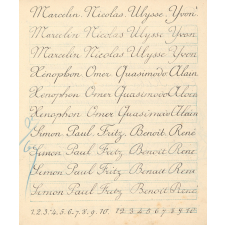 Marcelin. Nicolas. Ulysse. Yvon.
Marcelin Nicolas Ulysse Yvon
Marcelin Nicolas Ulysse Yvon
Xénophon Omer Quasimodo Alain
Xénophon Omer Quasimodo Alain
Xénophon Omer Quasimodo Alain
Simon Paul Fritz Benoît René
Simon Paul Fritz Benoit René
Simon Paul Fritz Benoit René
Simon Paul Fritz Benoit René
1.2.3.4.5.6.7.8.9.10. 1 2 3 4 5 6 7 8 9 10